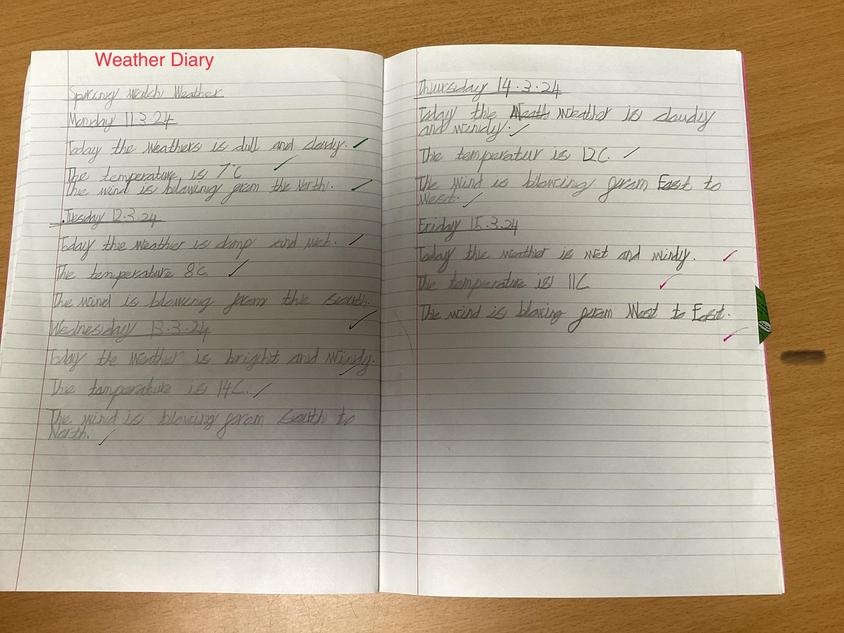 Weather Diary
Spring Watch Weather
Monday 11.3.24
Today the weathers is dull and cloudy.
The temperature is 7°C
the wind is blowing from the North.
Tuesday 12.3.24
Today the weather is damp and wet.
The temperature 8°C.
The wind is blowing from the south.
Wednesday 13.3.24
Today the weather is bright and windy.
The tamperature is 14C.
The wind is blowing from south to
North.
Thursday 14.3.24
Today the Weath weather is cloudy
and windy.
The temperatur is 12C.
The wind is blowing from East to
West.
Friday 15.3.24
Today the weather is wet and windy.
The temperature is 11C
The wind is blowing from West to East.